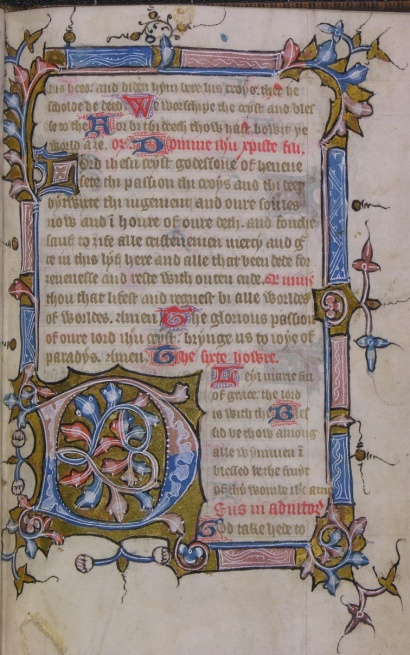 his heed. and diden hym bere his croys. that he
scholde be deed We worschipe the crist and bles
se to the For bi thi deeth thow hast bowȝt ye
world aȝe. or. Domine ihu xpiste fili.
Lord ihesu crist goddes sone of heuene
sete thi passion thi croys and thi deep
bytwixe thi iugement and oure soules
now and ī houre of oure deth. and fouche
saue to ȝife alle cristenemen mercy and g
ce in this lyf here and alle that been dede for
ȝeuenesse and reste with outen ende.
thou that lifest and regnest bi alle worldes
of worldes. Amen The glorious passion
of oure lord ihu crist: brynge us to ioye of
paradys. Amen. The sixte howre.
Heyl marie ful
of grace. the lord
is with the Bles
sid be thow among
alle wymmen ī
blessed be the fruyt
of thy wombe ihc
Deus in adiutor
God take hede to